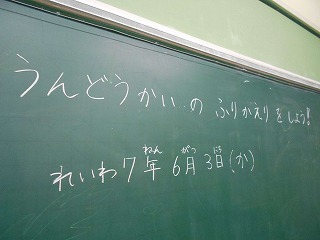 うんどうかいのふりかえりをしよう!
れいわ7年6月3日(か)
ねん がつ にち